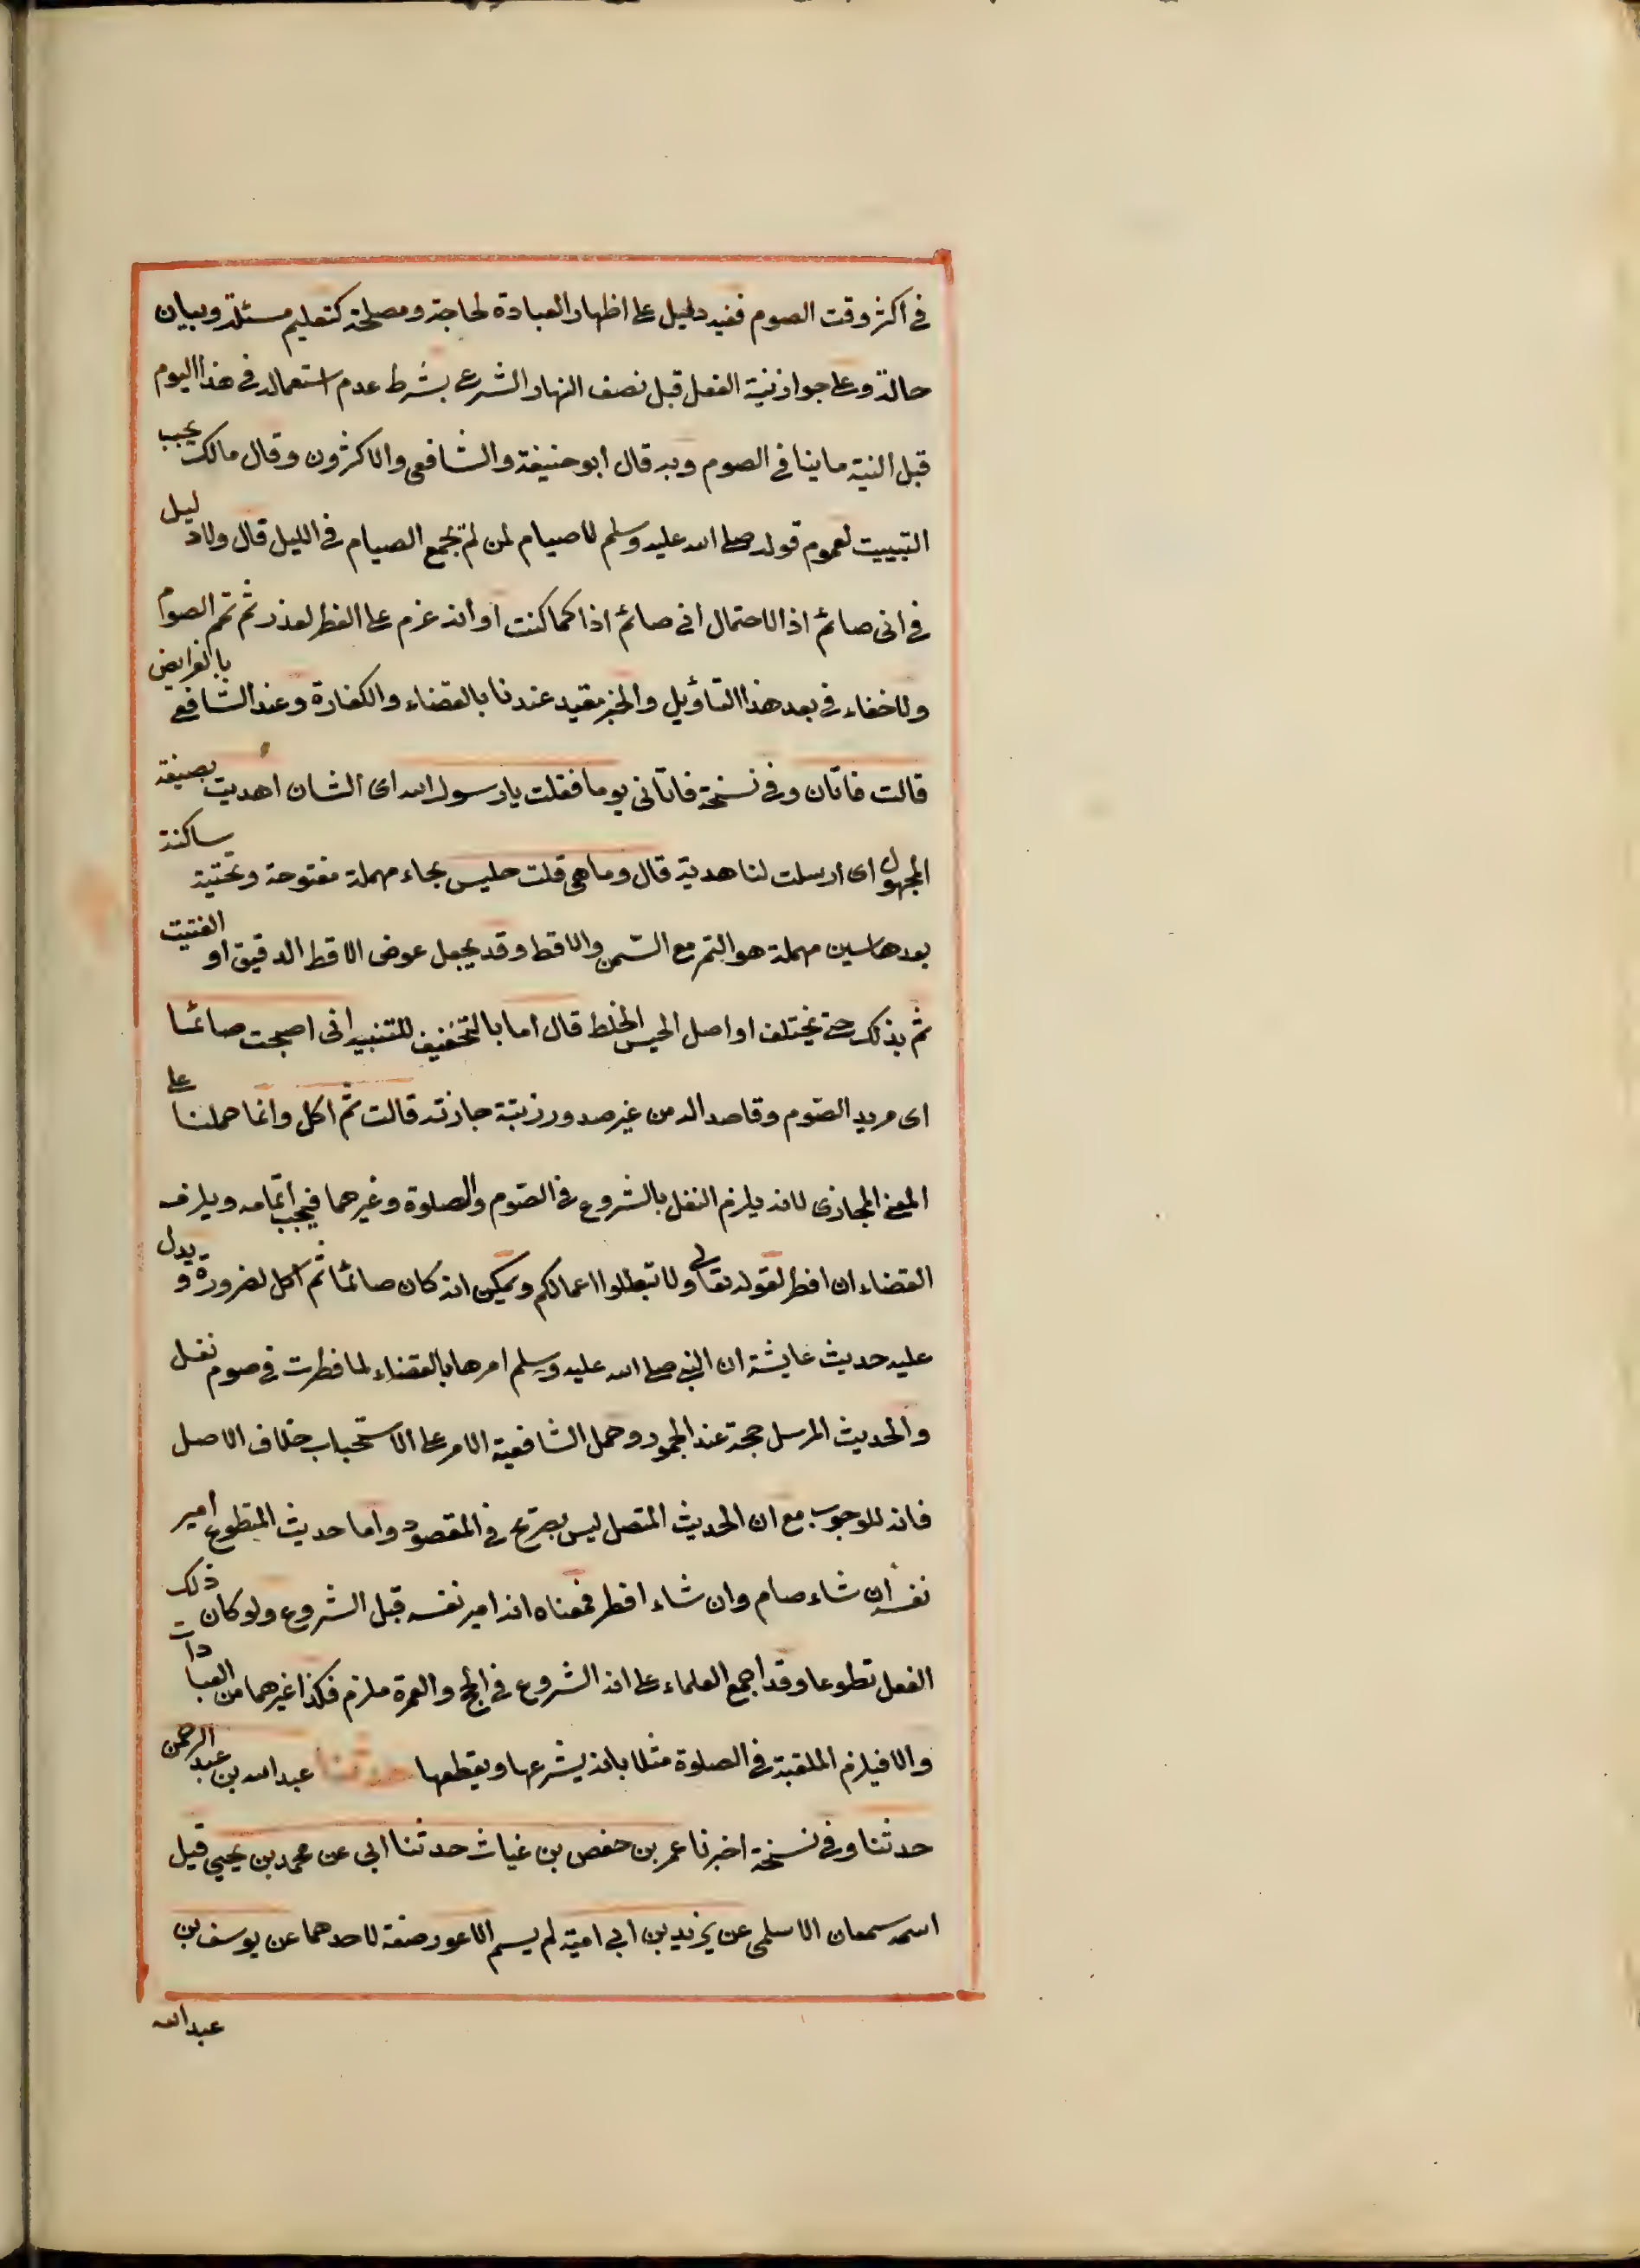 في اكثر وقت الصوم ففيه دليل على اظهار العبادة لحاجة ومصلحة كتعليم مسئلة وبيان
حالة وعلى جواز نية النفل قبل نصف النهار الشرعي بشرط عدم استعماله في هذا اليوم
قبل النية ما ينافي الصوم وبه قال ابو حنيفة والشافعي والاكثرون وقال مالك يجب
التبييت لعموم قوله صلى الله عليه وسلم لا صيام لمن لم يجمع الصيام في الليل قال ولا دليل
في اني صائم اذا لاحتمال اني صائم اذا كما كنت او انه عزم على الفطر لعذر ثم تمم الصوم
ولا خفاء في بعد هذا التأويل والخبر مقيد عندنا بالقضاء والكفارة وعند الشافعي بالفرايض
قالت فاتان وفي نسخة فاتاني يوما فقلت يا رسول الله اى الشان أهديت بصيغة
المجهول اى ارسلت لنا هدية قال وما هي قلت حليس بحاء مهملة مفتوحة وتحتية ساكنة
بعدها سين مهملة هو التمر مع السّمن والاقط وقد يجعل عوض الاقط الدقيق او الفتيت
ثم يذلك حتى يختلف او اصل الحيس الخلط قال اما بالتخفيف للتنبيه اني اصبحت صائما
اى مريد الصّوم وقاصد اله من غير صدور نية جازته قالت ثم اكل وانما حملنا على
المعنى المجازى لانه يلزم النفل بالشروع في الصّوم والصلوة وغيرهما فيجب اتمامه ويلزمه
القضاء ان افطر لقوله تعالى ولا تبطلوا اعمالكم ويمكن انه كان صائما ثم اكل لضرورة ويدل
عليه حديث عايشة ان النبي صلى الله عليه وسلم امرها بالقضاء لما فطرت في صوم نفل
والحديث المرسل حجة عند الجمهور وحمل الشافعية الامر على الاستحباب خلاف الاصل
فانه للوجوب مع ان الحديث المتصل ليس بصريح في المقصود واما حديث المتطوع امير
نفسه ان شاء صام وان شاء افطر فمعناه انه امير نفسه قبل الشروع ولو كان ذلك
الفعل تطوعا وقد اجمع العلماء على انه الشروع في الحج والعمرة ملزم فكذا غيرهما من العبادات
والا فيلزم الملعبة في الصلوة مثلا بانه يشرعها ويقطعها حدثنا عبد الله بن عبد الرحمن
حدثنا وفي نسخة اخبرنا عمر بن حفص بن غياث حدثنا ابي عن محمد بن يحيى قيل
اسمه سمعان الاسلمي عن يزيد بن ابي امية لم يسم الاعور صفة لاحدهما عن يوسف بن
عبد الله